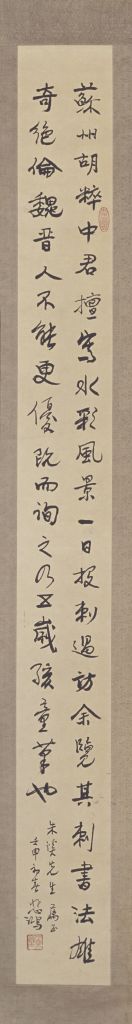 蘇州胡粹中君擅寫水彩風景一日投刺過訪余覽其刺書法雄
奇絕倫魏晉人不能更優既而詢之乃五歲孩童筆也
先生屬正
壬申初春